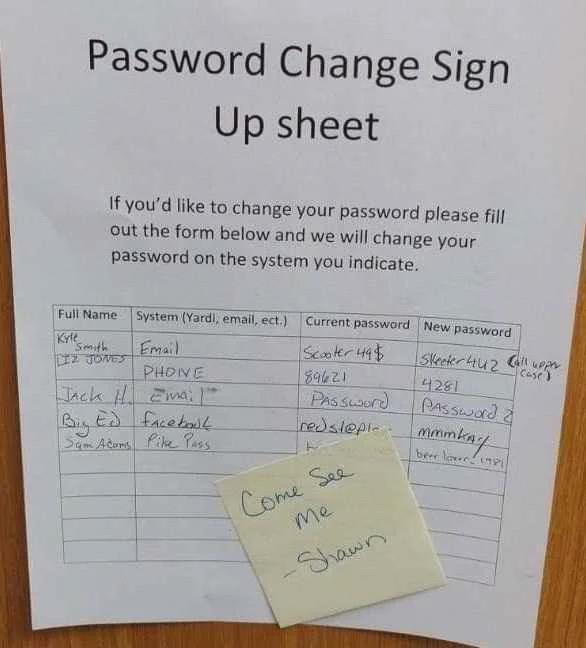 Password Change Sign
Up sheet
If you'd like to change your password please fill
out the form below and we will change your
password on the system you indicate.
Full Name System (Yardi, email, ect.) Current password New password
Kyle Smith Email Scooter49$ Skeeter442 (all upper case)
LIZ JONES PHONE 89621 4281
Jack H. Email PASSword PASSword 2
Big Ed facebook mmmkay
Sam Adams Pike Pass beer lover! 1981
Come See
me
- Shawn